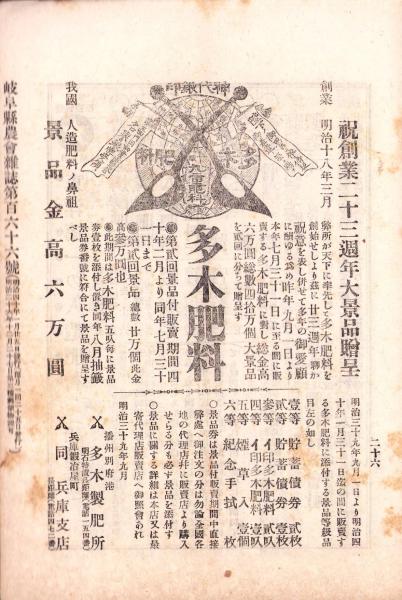 二十六
祝創業二十三週年大景品贈呈
創業 明治十八年三月
神代鍬印
多木肥料
我國 人造肥料ノ鼻祖
景品金高六万圓
弊所が天下に率先して多木肥料を
創始せしより茲に廿三週年聊か
祝意を表し併せて多年の御愛顧
に酬ゆる爲め昨年九月一日より
本年七月三十一日に至る間に販
賣する多木肥料に對し總金高
六万圓總數四拾万個大景品
を貳回に分つて贈呈す
多木肥料
第貳回景品付販賣期間四
十年二月より同年七月三十
一日まで
第貳回景品總數廿万個此金
高參万圓也
此期間は多木肥料五叺毎に景品
券壹枚を添付し置き同年八月抽籤
の上景品券番號に符合にて景品を贈呈す
明治三十九年九月一日より明治四
十年一月三十一日迄の間に販賣す
る多木肥料に添付する景品等級品
目左の如し
壹等 貯蓄債券 貳枚
貳等 貯蓄債券 壹枚
參等 イ印多木肥料 貳叺
四等 イ印多木肥料 壹叺
五等 煙草入 壹個
六等 紀念手拭 壹枚
○景品券は景品付販賣期間中直接
弊處へ御注文の分は勿論全國各
地の代理店并に販賣店より購入
せらるゝ分も必ず景品を添付す
○景品に關する詳細は本店又は最
寄代理店販賣店へ御照會あれ
明治三十九年九月
播州別府港
多木製肥所
兵庫鍛冶屋町
同兵庫支店
岐阜縣農會雜誌第百六十六號